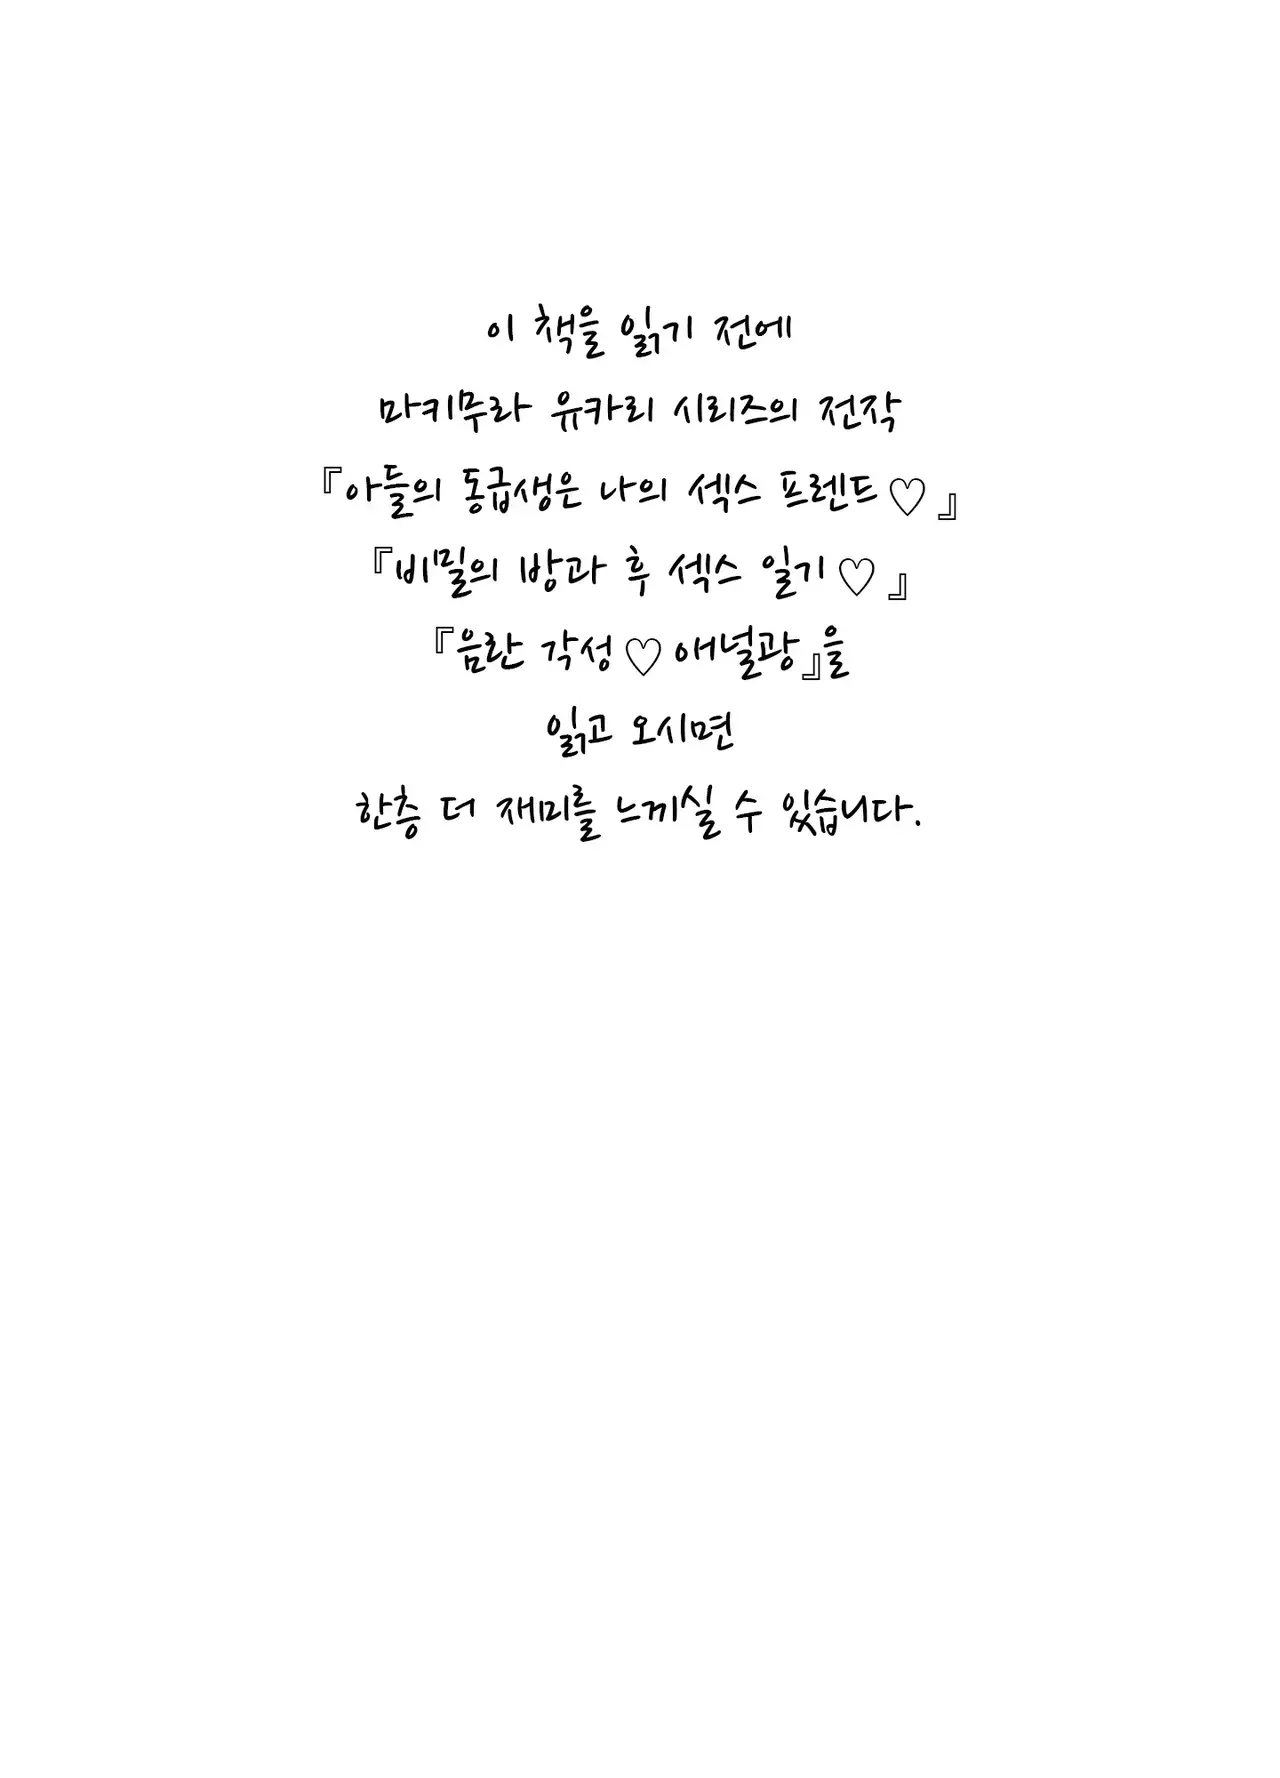 이 책을 읽기 전에
마키무라 유카리 시리즈의 전작
『아들의 동급생은 나의 섹스 프렌드♡』
『비밀의 방과 후 섹스 일기♡』
『음란 각성♡애널광』을
읽고 오시면
한층 더 재미를 느끼실 수 있습니다.